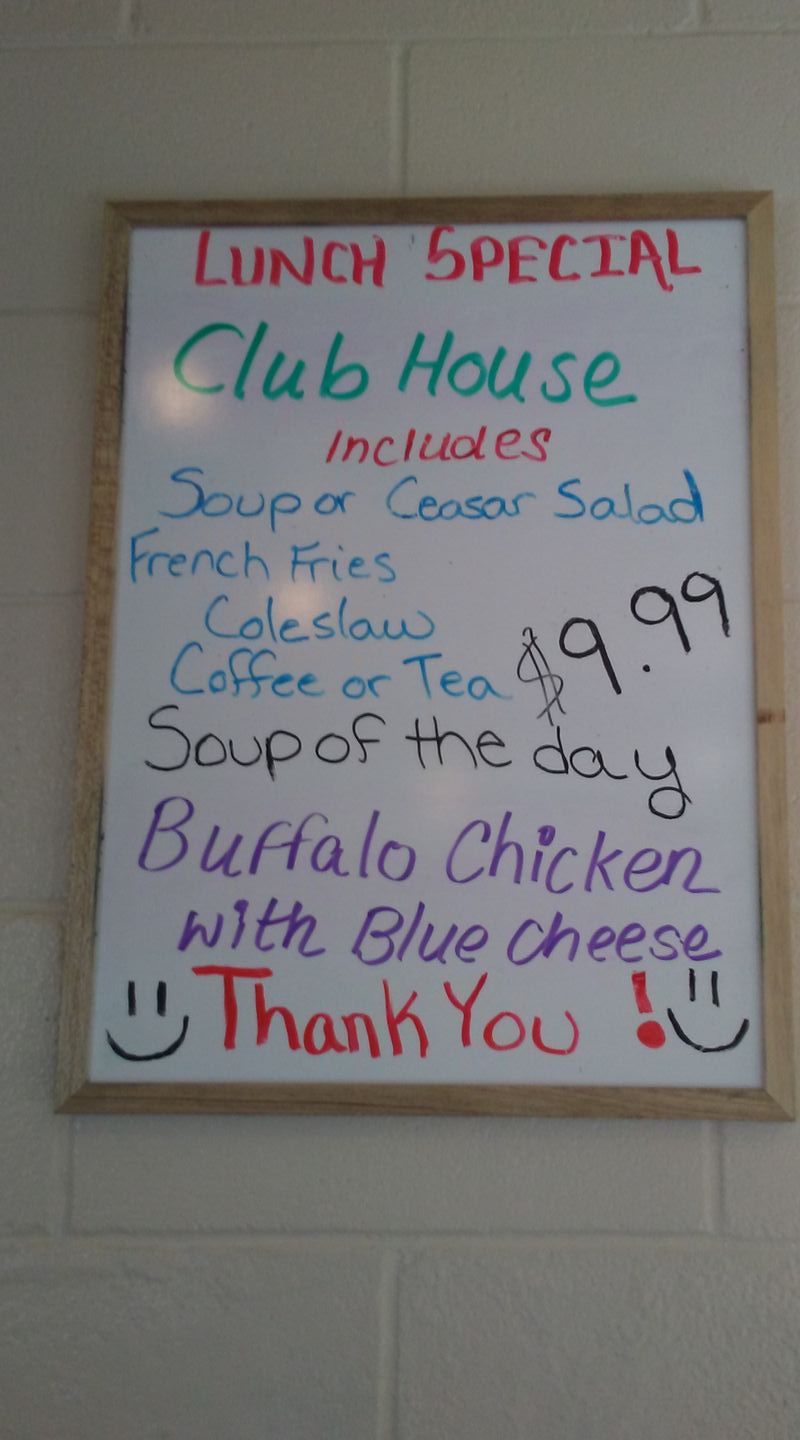 LUNCH SPECIAL
Club House
Includes
Soup or Ceasar Salad
French Fries
Coleslaw
Coffee or Tea $9.99
Soup of the day
Buffalo Chicken
with Blue Cheese
Thank You !